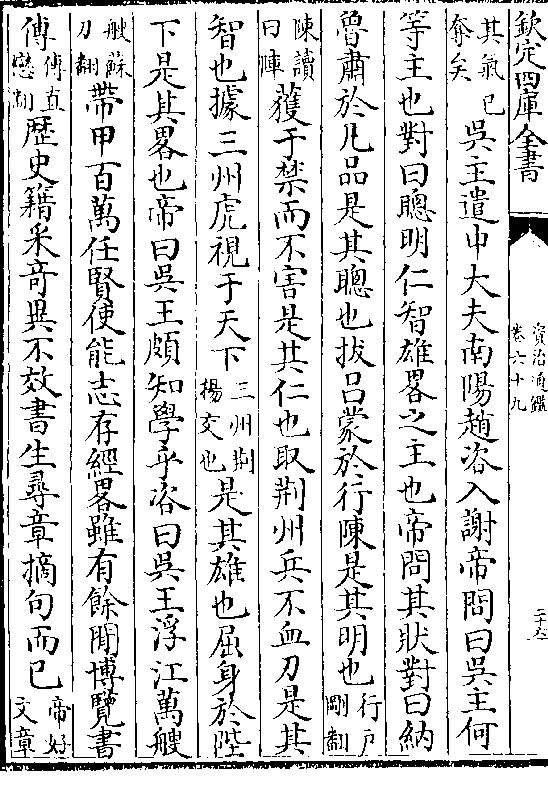 欽定四庫全書
資治通鑑
卷六十九
二十六
其氣已
奪矣吳主遣中大夫南陽趙咨入謝帝問曰吳主何
等主也對曰聰明仁智雄畧之主也帝問其狀對曰納
魯肅於凡品是其聰也拔吕蒙於行陳是其明也行户
剛翻
陳讀
曰陣獲于禁而不害是其仁也取荆州兵不血刃是其
智也據三州虎視于天下三州荆
揚交也是其雄也屈身於陛
下是其畧也帝曰吳王頗知學乎咨曰吳王浮江萬艘
艘蘇
刀翻帶甲百萬任賢使能志存經畧雖有餘閒博覽書
傳傳直
戀翻歴史籍采竒異不效書生尋章摘句而已帝好
文章